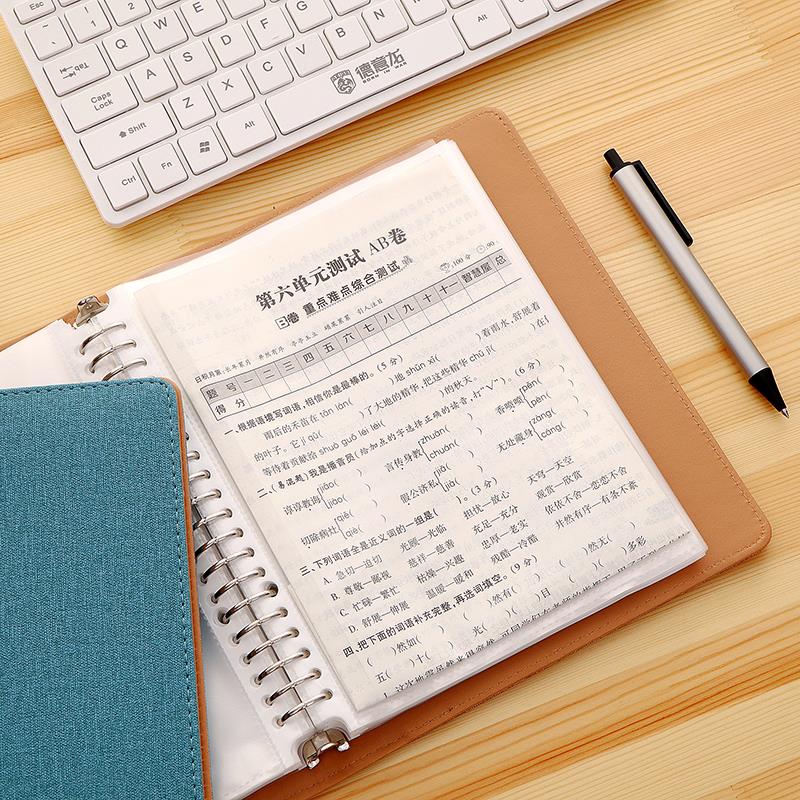 Esc
1
2
Q
W
E
R
T
Y
U
I
O
P
Tab
A
S
D
F
G
H
J
K
L
Caps Lock
Z
X
C
V
B
N
M
Shift
Ctrl
Fn
Alt
Alt
Ctrl
德意龙
BORN IN WAR
第六单元测试 AB卷
B卷 重点难点综合测试
100分 90
日积月累:
题号 一 二 三 四 五 六 七 八 九 十 十一 智慧屋 总
得分
一、根据语境填写词语,相信你是最棒的。(5分)
雨后的禾苗在 tān lán( )地 shǔn xī( )着雨水,舒展着
的叶子。它 jí qǔ( )了大地的精华,把这些精华 chǔ jí( )在
等待着贡献给 shuò guǒ lěi lěi( )的秋天。
二、(易混题)我是播音员(给加点的字选择正确的读音,打“√”)。(6分)
谆谆教诲 jiāo( ) jiào( )
言传身教 zhuàn( ) chuán( )
香喷喷 pēn( ) pèn( )
切除病灶 qiē( ) qiè( )
假公济私 jǐ( ) jì( )
无处藏身 zàng( ) cáng( )
三、下列词语全是近义词的一组是( )。(3分)
A. 急切—迫切 光顾—光临 担忧—放心 天穹—天空
B. 尊敬—鄙视 慈祥—慈善 充足—充分 观赏—欣赏
C. 忙碌—繁忙 枯燥—兴趣 忠厚—老实 依依不舍—恋恋不舍
D. 舒展—伸展 温暖—暖和 残酷—冷酷 井然有序—有条不紊
四、把下面的词语补充完整,再选词填空。(9分)
( )然如( ) ( )然有( ) ( )然无( )
五( )十( ) 光( )( )目 ( )( )多彩